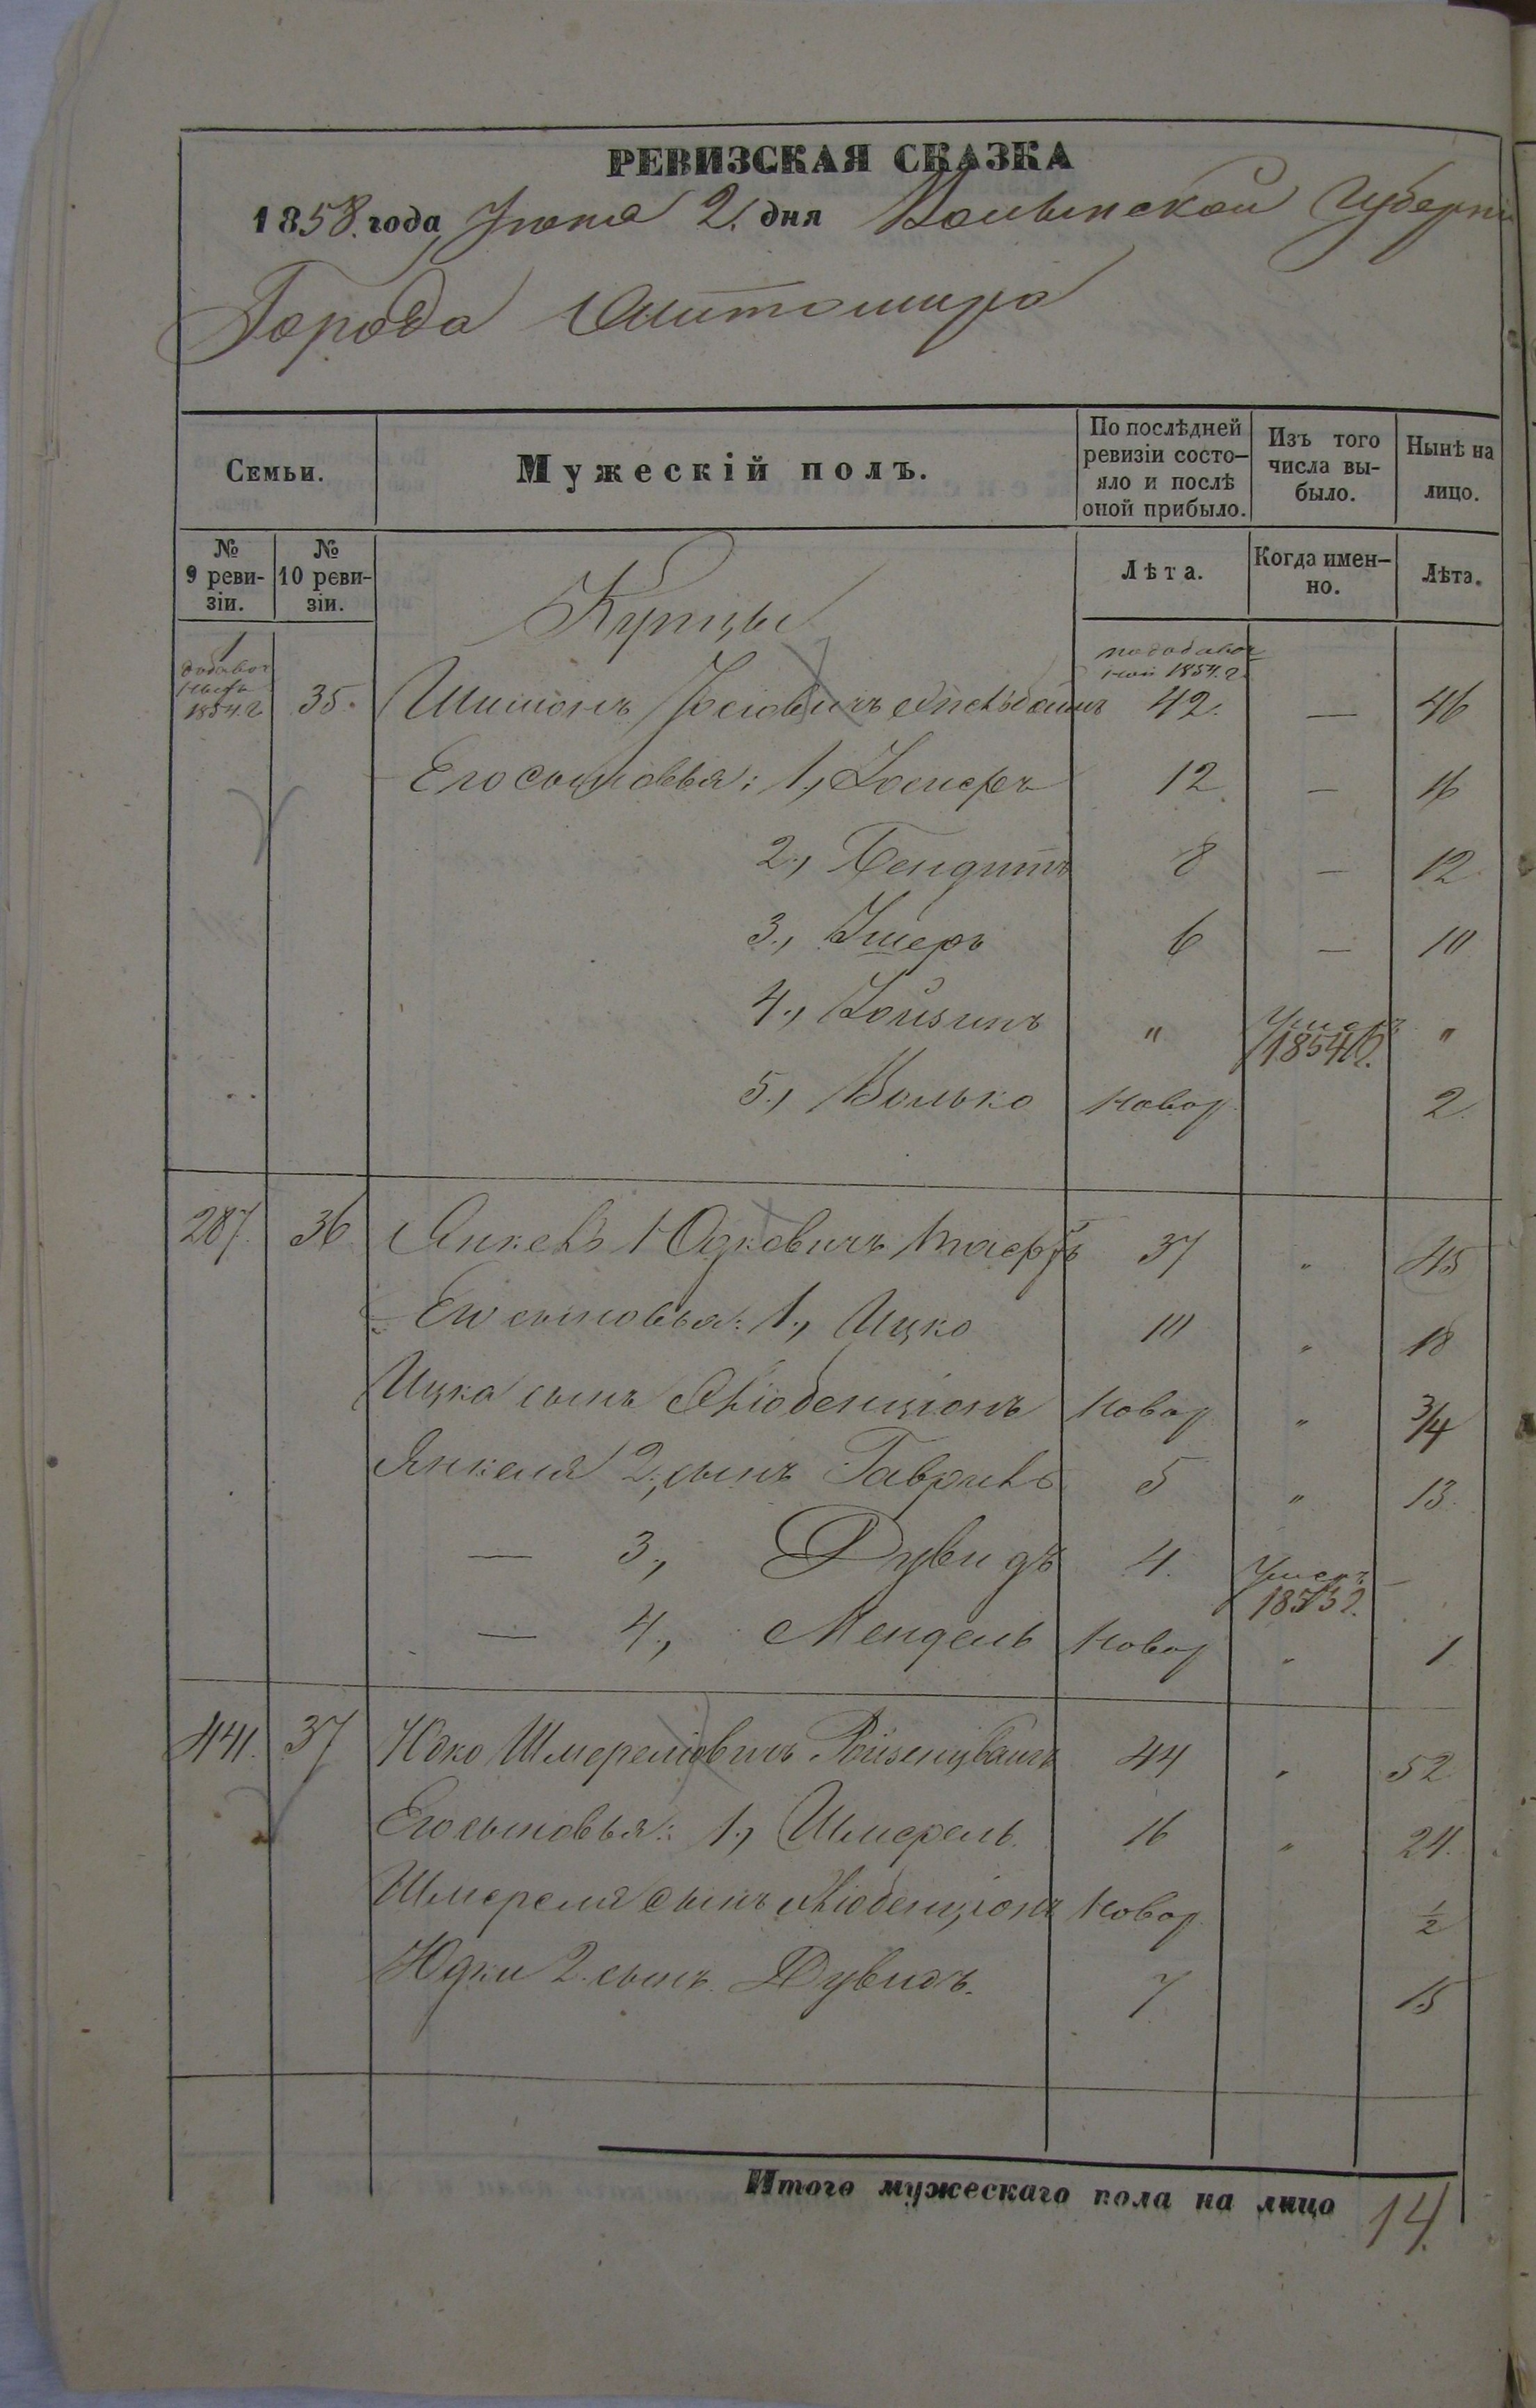 РЕВИЗСКАЯ СКАЗКА
1858. года Іюня 2. дня Волынской Губерніи
Города Житомира
Семьи.
Мужескій полъ.
По послѣдней ревизіи состо-яло и послѣ оной прибыло.
Изъ того числа вы-было.
Нынѣ на лицо.
№ 9 реви-зіи.
№ 10 реви-зіи.
Купцы
Лѣта.
Когда имен-но.
Лѣта.
1
1854. г.
по добавоч
ной 1854. г.
35. Шимонъ 42. — 46
Его сыновья: 1., Іосифъ 12. — 16
2., Бендитъ 8 — 12.
3., Ушеръ 6 — 10
4., Іойзипъ " Умеръ 1854 г. "
5., Волько новор. 2.
287. 36 Янкель Юдковичъ 37 " 45
Его сыновья: 1., Ицко 10 " 18
Ицка сынъ Любенціонъ новор " 3/4
Янкеля 2., сынъ Гавриль 5 " 13.
— 3., Дувидъ 4. Умеръ 1853 г. —
— 4., Мендель новор " 1
441. 37 Юдко Шмерелiовичъ Ройзенцвайгъ 44 " 52
Его сыновья: 1., Шмерель. 16 " 24.
Шмереля сынъ Любенціонъ новор. 1/2
Юдки 2. сынъ Дувидъ. 7 15
Итого мужескаго пола на лицо 14.